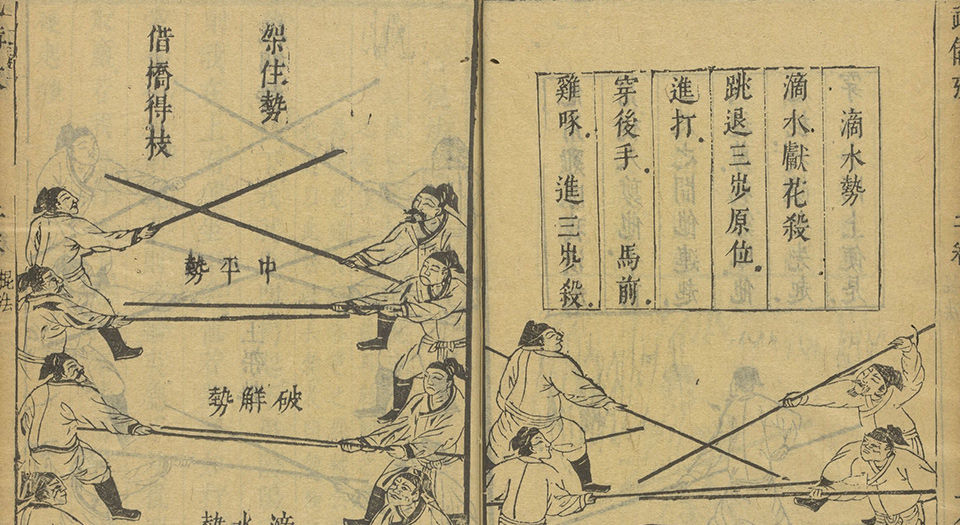 滴水勢
滴水。獻花殺。
跳退三步原位。
進打。
穿後手。馬前。
雞啄。進三步殺。
架住勢
借橋得枝
中平勢
破解勢
滴水勢
棍法